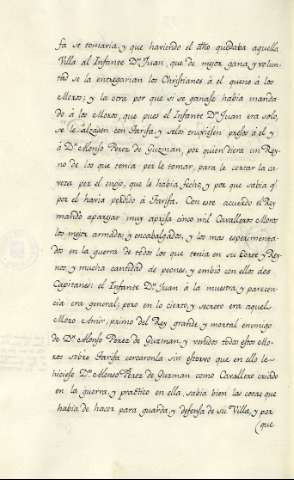 fa se tomaria, y que haviendo el año quedaba aquella
Villa al Infante Dn Juan, que de mejor gana, y volun-
tad se la entregarian los Christianos à el que no à los
Moros; y la otra por que si se ganase habia manda-
do à los Moros, que pues el Infante Dn Juan era solo,
se le alzasen con Tarifa y se lo enviasen preso à el y
à Dn Alonso Perez de Guzman, por quien diera un Rey-
no de los que tenia por le tomar, para le cortar la ca-
veza por el enojo, que le habia fecho, y por que sabia qe
por el havia perdido à Tarifa. Con este acuerdo el Rey
mandó aparejar muy aprisa cinco mil Cavalleros Moros
los mejor armados y encabalgados, y los mas experimenta-
dos en la guerra de todos los que tenia en su Corte y Rey-
nos, y mucha cantidad de peones, y embió con ellos dos
Capitanes: el Infante Dn Juan à la muestra, y parecen-
cia era general; pero en lo cierto, y secreto era aquel
Moro Amir, primo del Rey grande y mortal enemigo
de Dn Alonso Perez de Guzman y venidos todos estos Mo-
ros sobre Tarifa cercaronla sin estorvo que en ello le
hiciese Dn Alonso Perez de Guzman como Cavallero criado
en la guerra, y practico en ella, sabia bien las cosas que
habia de hacer para guarda, y defensa de su Villa, y por
(que